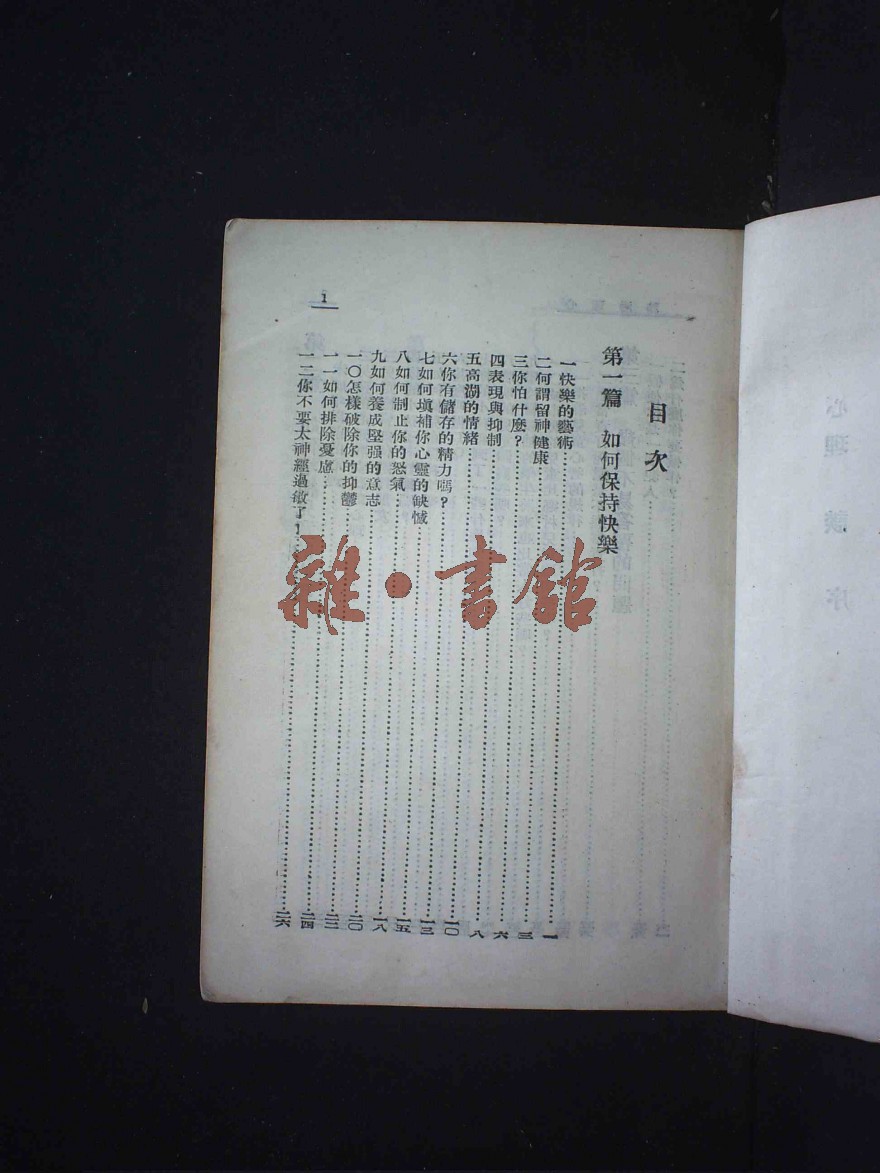 心理 序
目次
第一篇 如何保持快樂
一快樂的藝術……一
二何謂留神健康……三
三你怕什麼？……六
四表現與抑制……八
五高潮的情緒……一〇
六你有儲存的精力嗎？……一三
七如何填補你心靈的缺憾……一五
八如何制止你的怒氣……一八
九如何養成堅强的意志……二〇
一〇怎樣破除你的抑鬱……二二
一一如何排除憂慮……二四
一二你不要太神經過敏了！……二六
1
雜·書館